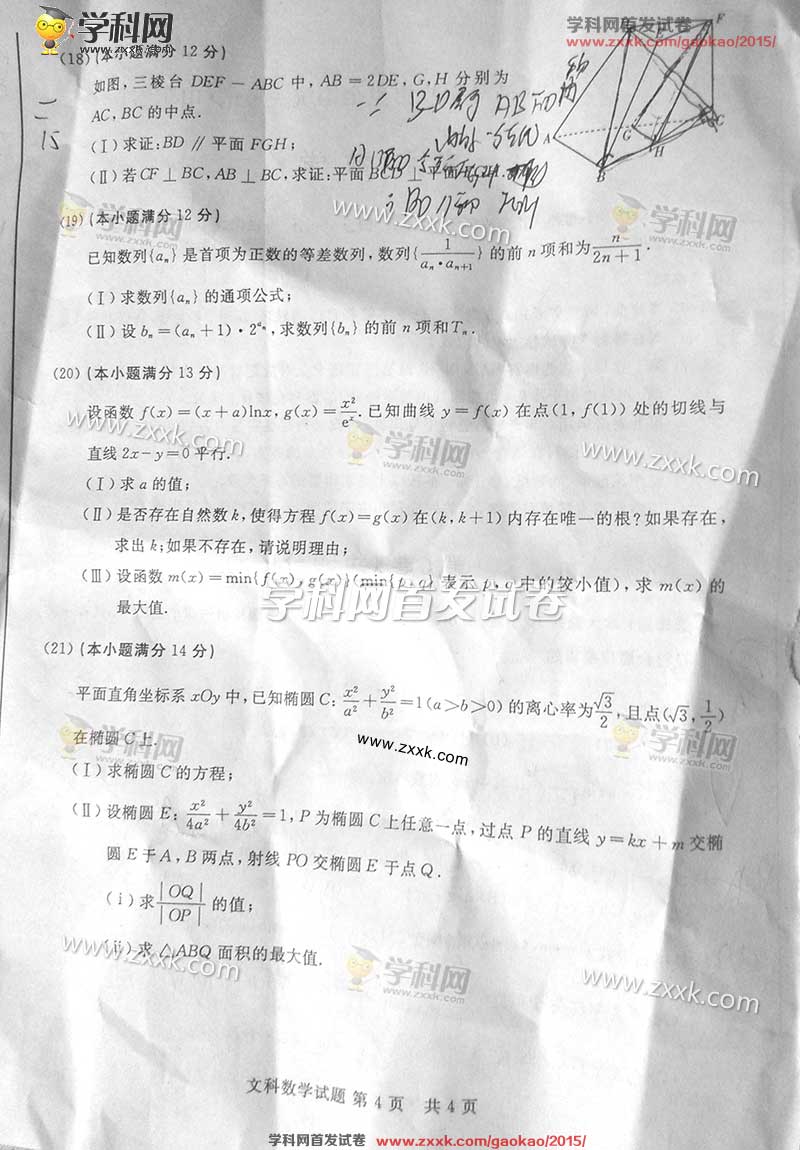 学科网
zxxk.com
学科网首发试卷
www.zxxk.com/gaokao/2015/
(18) (本小题满分 12 分)
如图,三棱台 DEF－ABC 中, AB＝2DE, G, H 分别为
AC, BC 的中点.
(Ⅰ) 求证:BD∥平面 FGH;
(Ⅱ) 若 CF⊥BC, AB⊥BC, 求证:平面 BCD⊥平面
A
B
C
F
G
H
二
15
(19) (本小题满分 12 分)
已知数列{aₙ}是首项为正数的等差数列,数列{1/(aₙ·aₙ₊₁)}的前 n 项和为 n/(2n+1).
(Ⅰ) 求数列{aₙ}的通项公式;
(Ⅱ) 设 bₙ=(aₙ+1)·2^(aₙ), 求数列{bₙ}的前 n 项和 Tₙ.
(20) (本小题满分 13 分)
设函数 f(x)=(x+a)lnx, g(x)=x²/eˣ. 已知曲线 y=f(x) 在点(1, f(1)) 处的切线与
直线 2x-y=0 平行.
(Ⅰ) 求 a 的值;
(Ⅱ) 是否存在自然数 k, 使得方程 f(x)=g(x) 在(k, k+1) 内存在唯一的根?如果存在,
求出 k;如果不存在,请说明理由;
(Ⅲ) 设函数 m(x)=min{f(x), g(x)}(min{p, q} 表示 p, q 中的较小值), 求 m(x) 的
最大值.
学科网首发试卷
(21) (本小题满分 14 分)
平面直角坐标系 xOy 中,已知椭圆 C: x²/a²+y²/b²=1(a>b>0) 的离心率为 √3/2, 且点(√3, 1/2)
在椭圆 C 上.
www.zxxk.com
(Ⅰ) 求椭圆 C 的方程;
(Ⅱ) 设椭圆 E: x²/4a²+y²/4b²=1, P 为椭圆 C 上任意一点,过点 P 的直线 y=kx+m 交椭
圆 E 于 A, B 两点,射线 PO 交椭圆 E 于点 Q.
(ⅰ) 求 |OQ|/|OP| 的值;
(ⅱ) 求 △ABQ 面积的最大值.
文科数学试题 第 4 页 共 4 页
学科网首发试卷 www.zxxk.com/gaokao/2015/